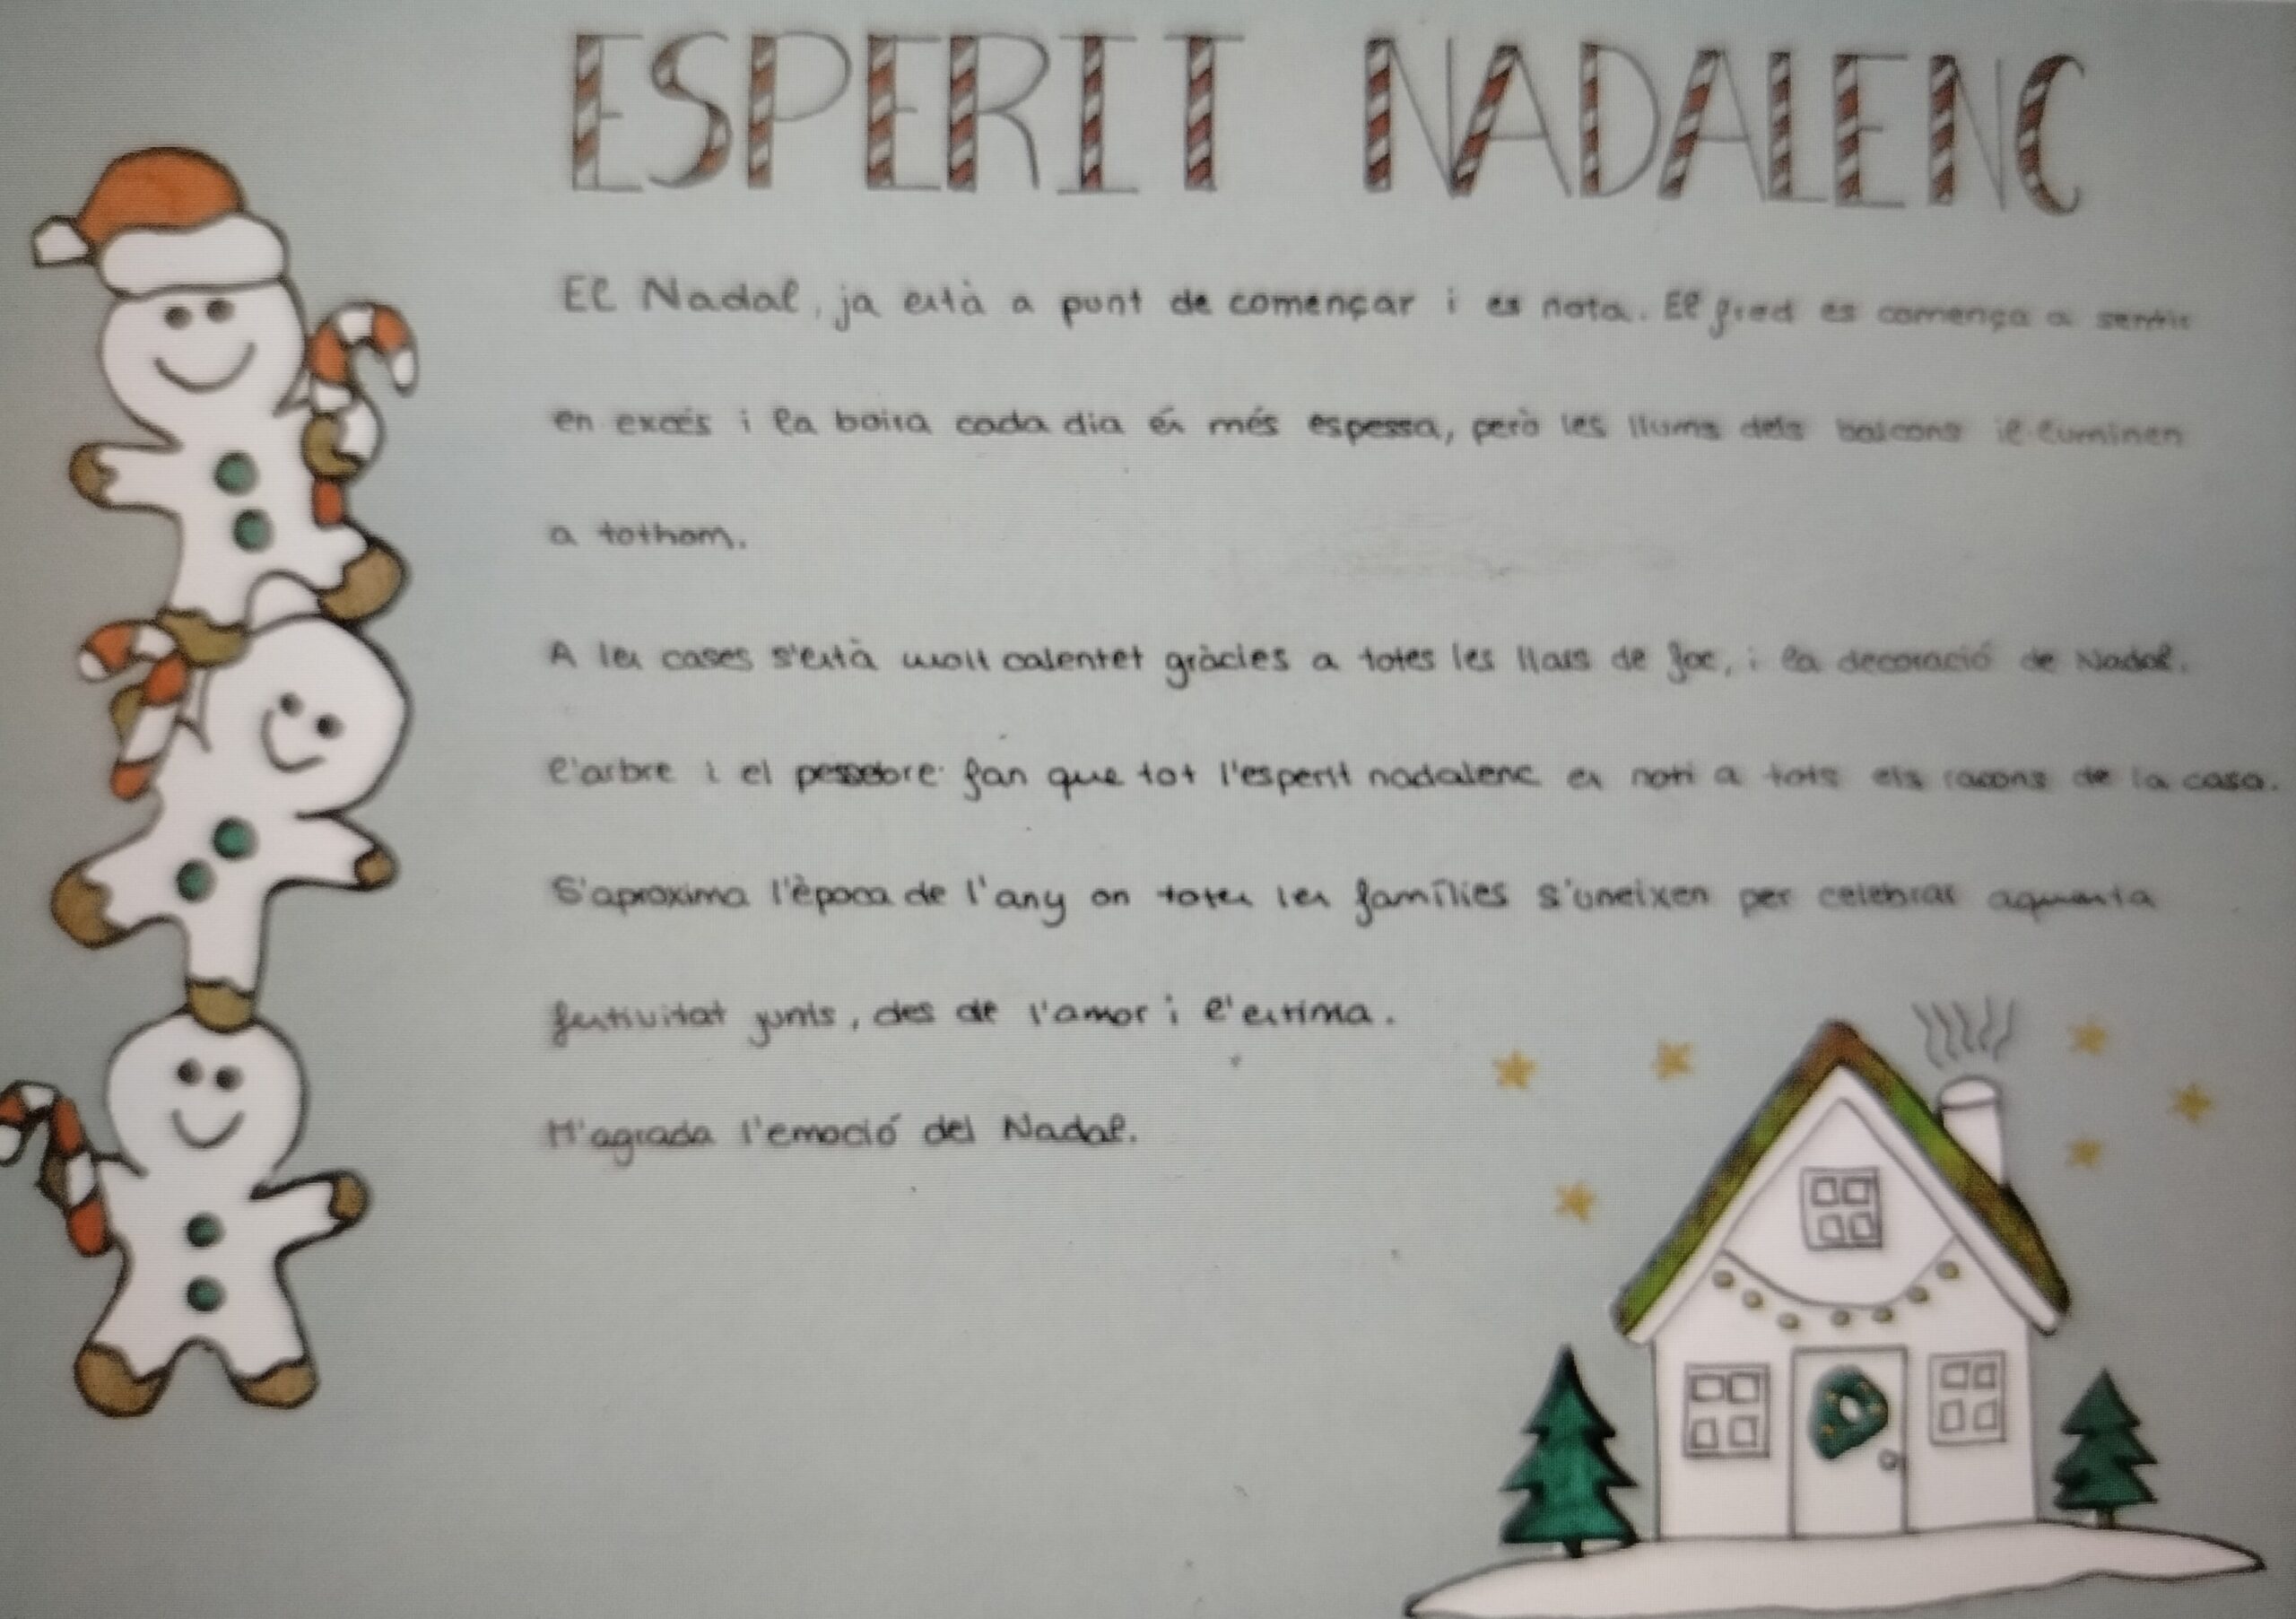 ESPERIT NADALENC
El Nadal, ja està a punt de començar i es nota. El fred es comença a sentir
en excés i la boira cada dia és més espessa, però les llums dels balcons il·luminen
a tothom.
A les cases s'està molt calentet gràcies a totes les llars de foc, i la decoració de Nadal.
l'arbre i el pessebre fan que tot l'esperit nadalenc es noti a tots els racons de la casa.
S'aproxima l'època de l'any on totes les famílies s'uneixen per celebrar aquesta
festivitat junts, des de l'amor i l'estima.
M'agrada l'emoció del Nadal.